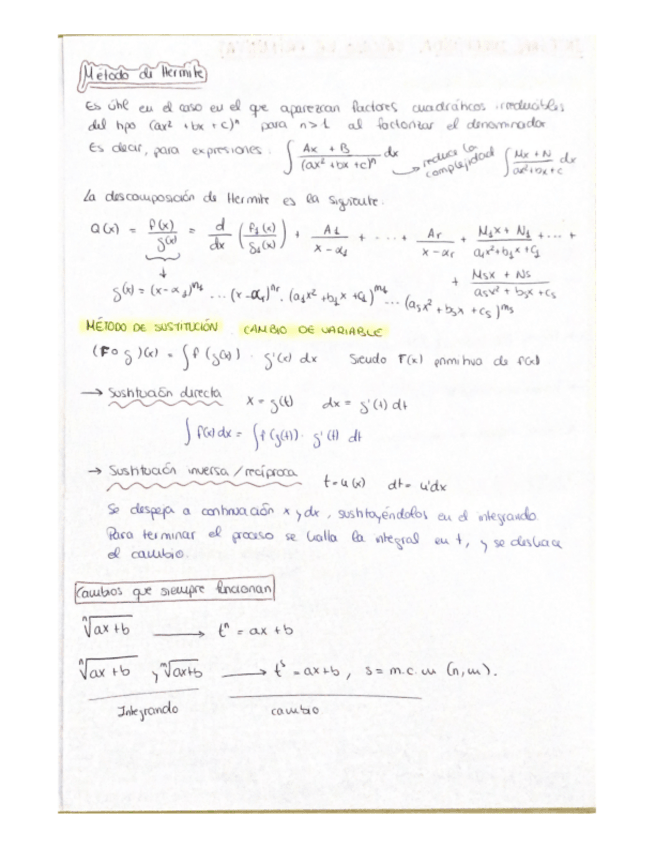 Método de Hermite
Es útil en el caso en el que aparezcan factores cuadráticos irreducibles
del tipo (ax² + bx + c)ⁿ para n>1 al factorizar el denominador
Es decir, para expresiones: ∫ (Ax + B)/(ax² + bx + c)ⁿ dx → reduce la complejidad ∫ (Mx + N)/(ax²+bx+c) dx
La descomposición de Hermite es la siguiente:
Q(x) = f(x)/g(x) = d/dx (f₁(x)/g₁(x)) + A₁/(x - α₁) + ... + Ar/(x - αr) + (M₁x + N₁)/(a₁x²+b₁x+c₁) + ... +
+ (Msx + Ns)/(asx² + bsx + cs)
g(x) = (x-α₁)^n₁ ... (x-αr)^nr · (a₁x² + b₁x + c₁)^m₁ ... (asx² + bsx + cs)^ms
MÉTODO DE SUSTITUCIÓN. CAMBIO DE VARIABLE
(F∘g)(x) = ∫ f(g(x)) · g'(x) dx siendo F(x) primitiva de f(x)
→ Sustitución directa x = g(t) dx = g'(t) dt
∫ f(x) dx = ∫ f(g(t)) · g'(t) dt
→ Sustitución inversa / recíproca t = u(x) dt = u'dx
Se despeja a continuación x y dx, sustituyéndolos en el integrando.
Para terminar el proceso se halla la integral en t, y se deshace
el cambio.
Cambios que siempre funcionan
ⁿ√(ax+b) → tⁿ = ax + b
ⁿ√(ax+b) y ᵐ√(ax+b) → tˢ = ax+b, s = m.c.m (n,m).
Integrando cambio